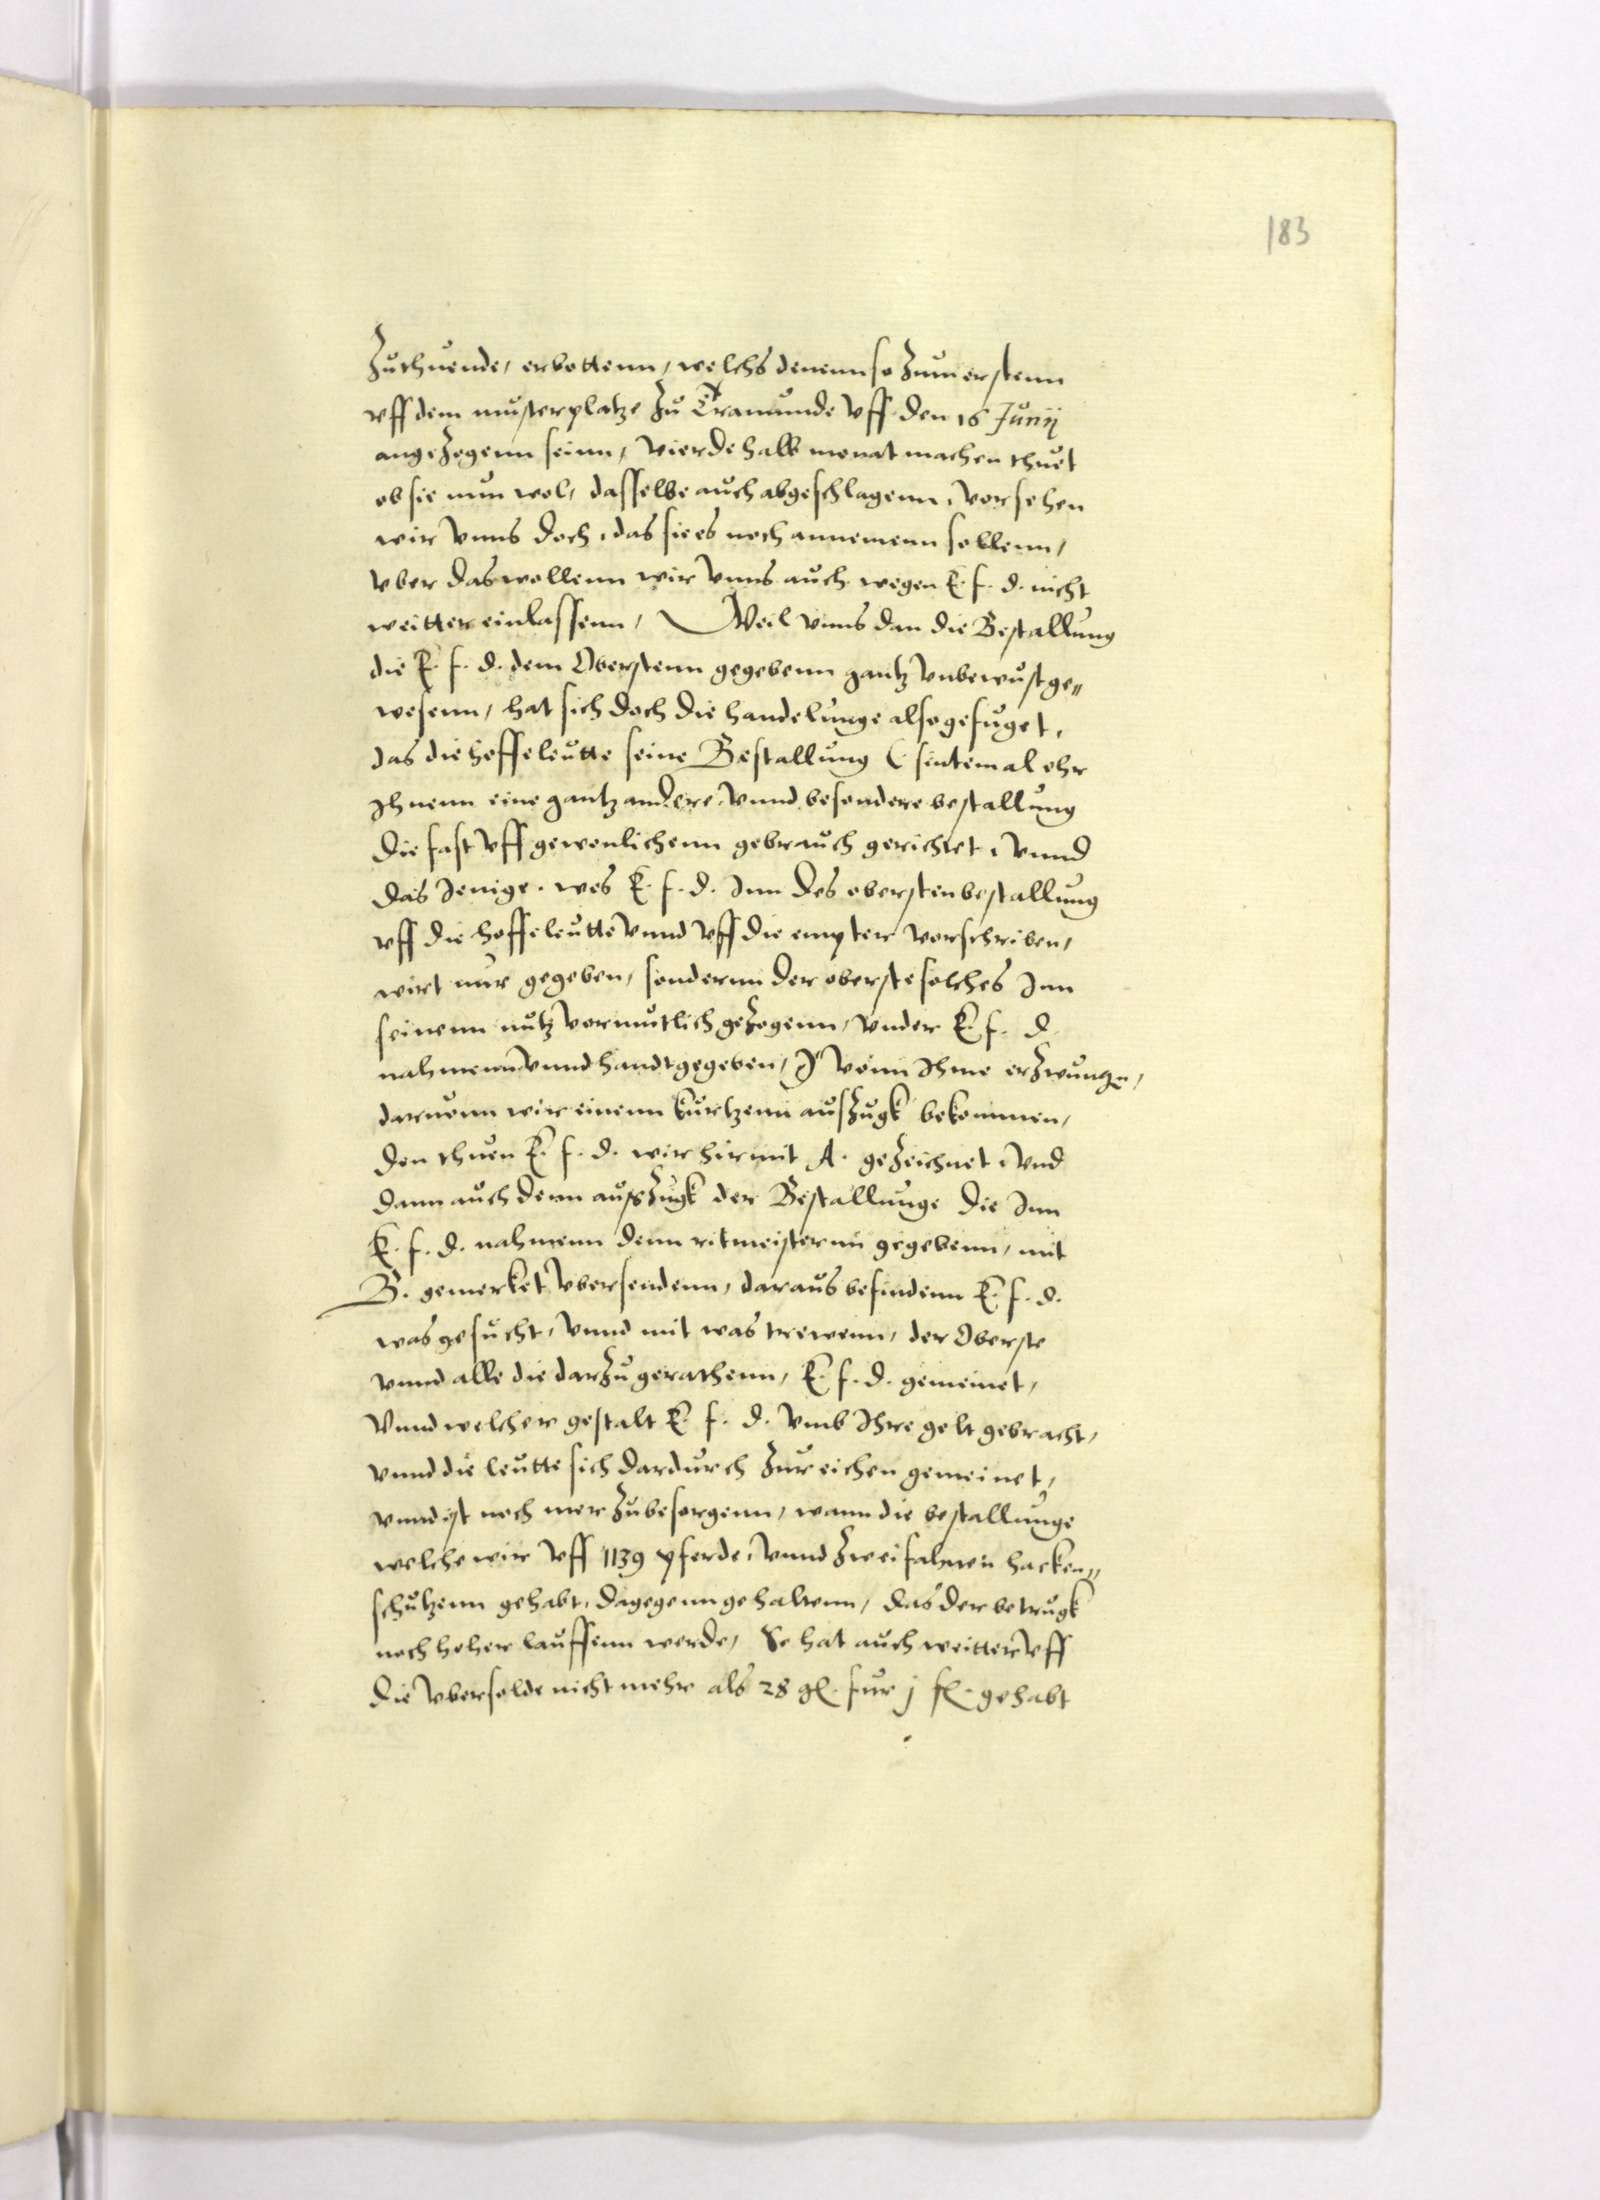 183
Zuthuende, erbottenn, welchs denenn so Zum erstenn
vff dem musterplatze Zu Tramunde vff den 16 Junij
angeZogenn seinn, vierdehalb monat machen thuet
ob sie nun wol, dasselbe auch abgeschlagenn, vorsehen
wir vnns doch, das sie es noch annemenn sollenn,
vber das wollenn wir vnns auch wegen E. f. d. nicht
weitter einlassenn, Weil vnns dan die Bestallung
die E. f. d. dem Oberstenn gegebenn gantz vnbewust ge„
wesenn, hat sich doch die handelunge also gefuget,
das die hoffeleutte seine Bestallung (sintemal ehr
Ihnenn eine gantz andere vnnd besondere bestallung
die fast vff gewonlichenn gebrauch gerichtet, vnnd
das Jenige. wes E. f. d. Inn des obersten bestallung
vff die hoffeleutte vnnd vff die empter vorschriben,
wirt nur gegeben, sondernn der oberste solches Inn
seinenn nutz vormutlich geZogenn, vnder E. f. d.
nahmenn vnnd handt gegeben,) vonn Ihme erZwungen,
daruonn wir einenn kurtzenn ausZugk bekommen,
den thuen E. f. d. wir hirmit A. geZeichnet, vnd
dann auch denn ausZugk der Bestallunge die Inn
E. f. d. nahmenn denn ritmeisternn gegebenn, mit
B. gemerket vbersendenn, daraus befindenn E. f. d.
was gesucht, vnnd mit was trewenn, der Oberste
vnnd alle die darZu gerathenn, E. f. d. gemeinet,
vnnd welcher gestalt E. f. d. vmb Ihre gelt gebracht,
vnnd die leutte sich dardurch Zureichen gemeinet,
vnnd ist noch mer Zubesorgenn, wann die bestallunge
welche wir vff 1139 pferde, vnnd Zwei fahnen hacken„
schutzenn gehabt, dagegenn gehaltenn, das der betrugk
noch hoher lauffenn werde, So hat auch weitter vff
die vbersolde nicht mehr als 28 gl. fur j fl. gehabt